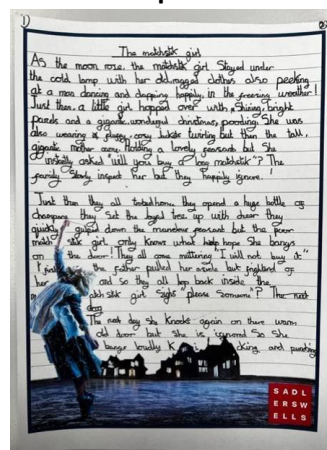 The matchstik girl
As the moon rose, the matchstik girl Stayed under
the cold lamp with her old ragged clothes also peeking
at a man dancing and clapping happily, in the freezing weather!
Just then, a little girl hopped over with Shining, bright
parcels and a gigantic, wonderful christmas, pooding. She was
also wearing a fluffy, cosy twirling but then the tall,
gigantic mother came, Holding a lovely peasant but She
instantly asked "will you buy a long matchstik"? The
family slowly inspect her but they happily ignore.
Just then they all they opend a huge bottle of
champane they Set the loyal tree up with door they
quickly gulped down the peasant but the poor
match stik girl only Knows what hope She bangs
on the door! They all come muttering I will not buy it"
the father pulled her aside but frightend of
her and so they all hop back inside the
stik girl Sighs "please Someone"? The next
day
The next day she Knocks again on there warm
old door but She is ignored So She
bangs loudly and
SADL
ERSW
ELLS